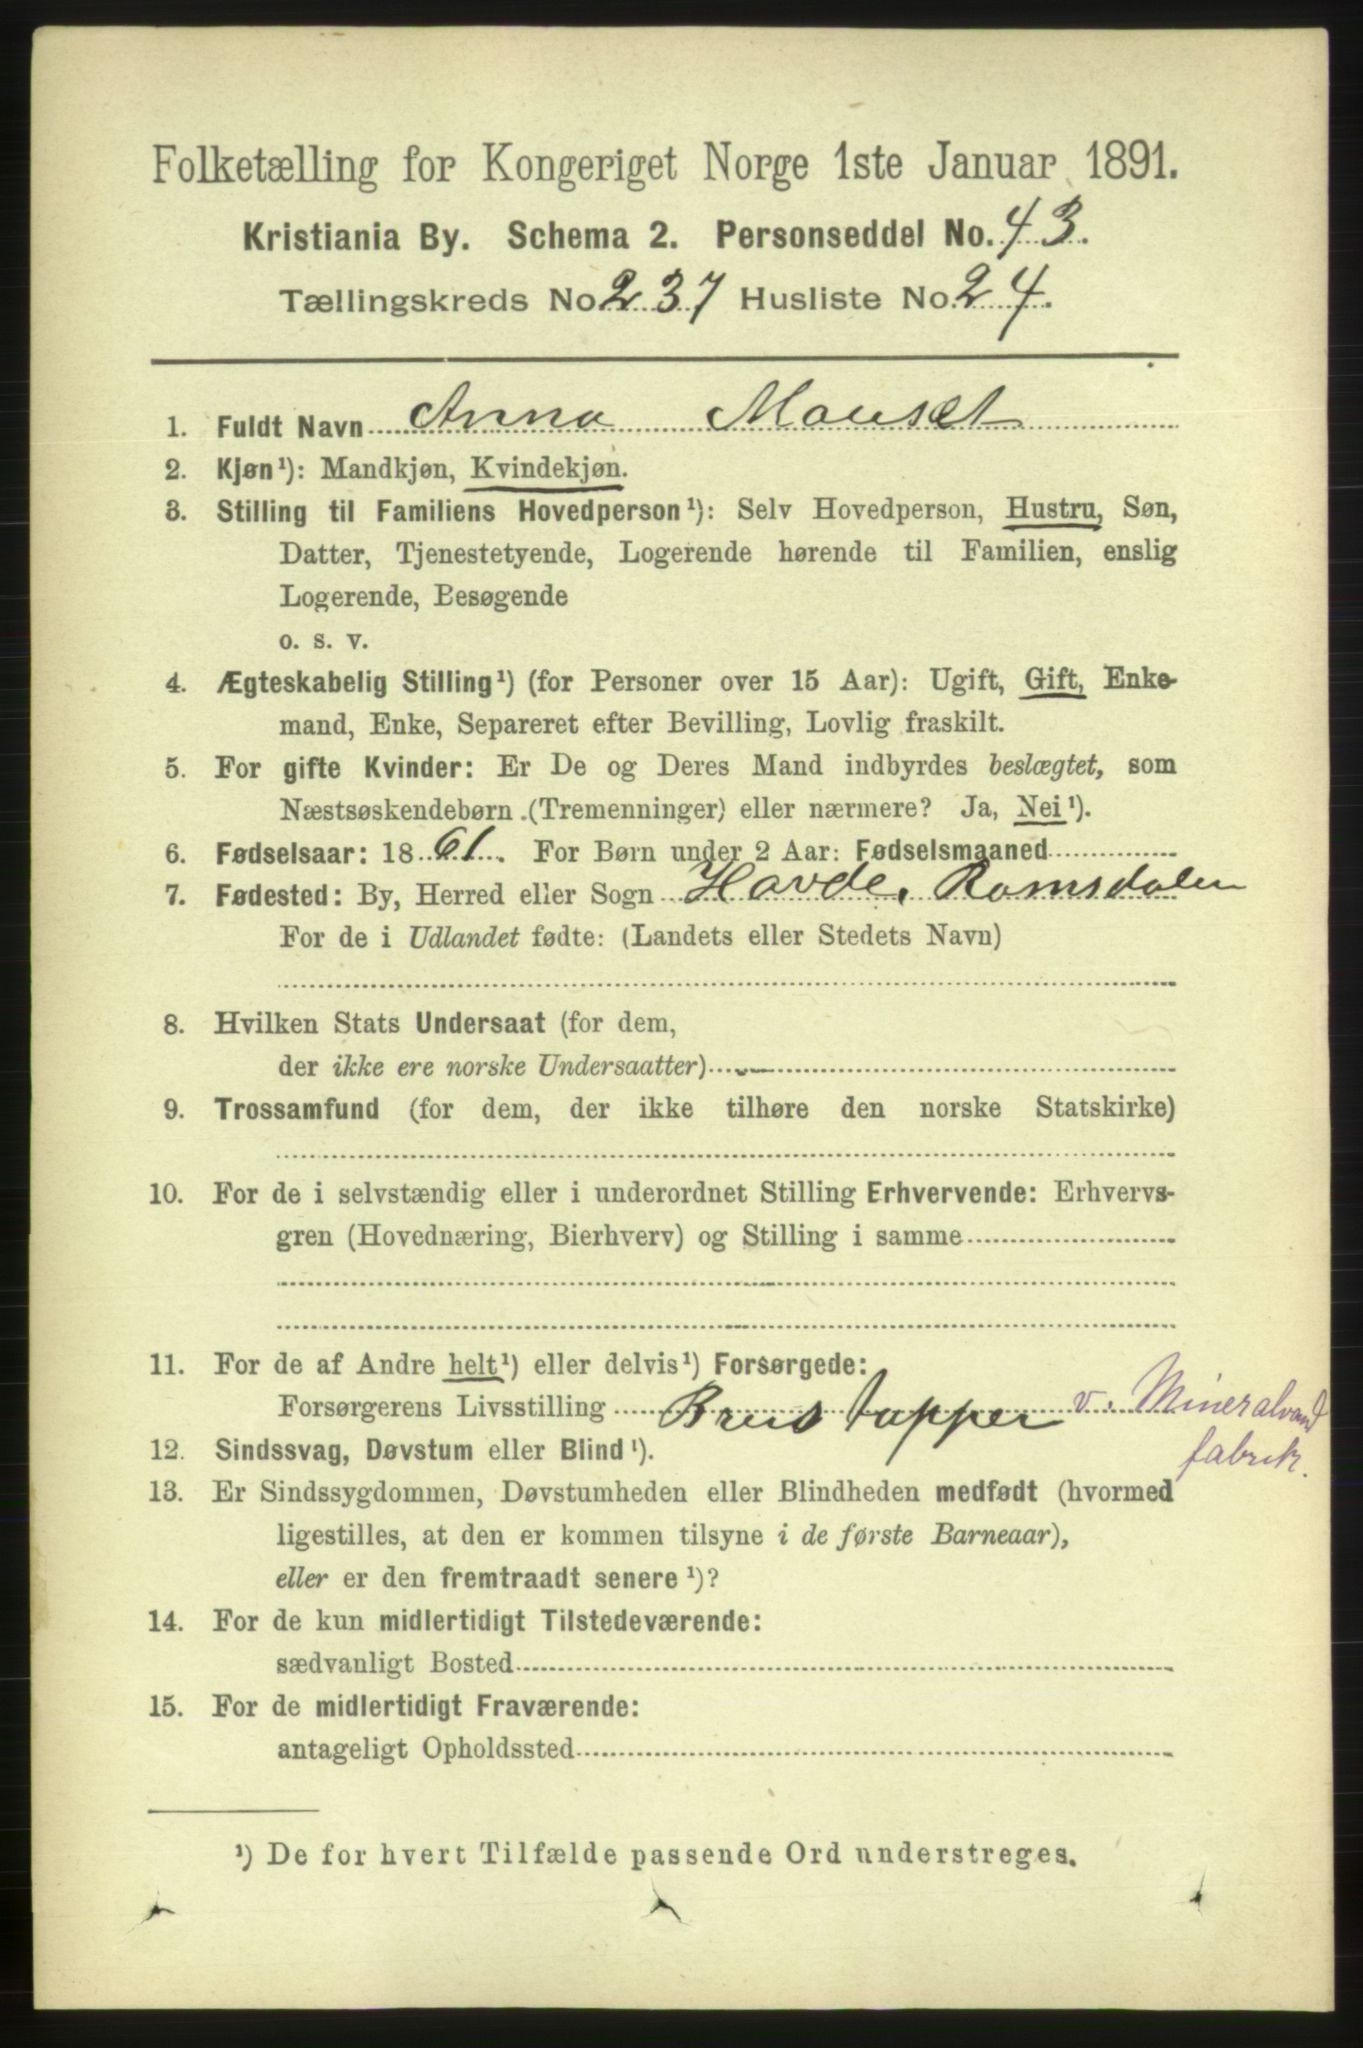 Folketælling for Kongeriget Norge 1ste Januar 1891.
Kristiania By. Schema 2. Personseddel No. 43.
Tællingskreds No. 237 Husliste No. 24.
1. Fuldt Navn Anna Mauset
2. Kjøn¹): Mandkjøn, Kvindekjøn.
3. Stilling til Familiens Hovedperson¹): Selv Hovedperson, Hustru, Søn,
Datter, Tjenestetyende, Logerende hørende til Familien, enslig
Logerende, Besøgende
o. s. v.
4. Ægteskabelig Stilling¹) (for Personer over 15 Aar): Ugift, Gift, Enke-
mand, Enke, Separeret efter Bevilling, Lovlig fraskilt.
5. For gifte Kvinder: Er De og Deres Mand indbyrdes beslægtet, som
Næstsøskendebørn (Tremenninger) eller nærmere? Ja, Nei¹).
6. Fødselsaar: 1861. For Børn under 2 Aar: Fødselsmaaned
7. Fødested: By, Herred eller Sogn Havde, Romsdalen
For de i Udlandet fødte: (Landets eller Stedets Navn)
8. Hvilken Stats Undersaat (for dem,
der ikke ere norske Undersaatter)
9. Trossamfund (for dem, der ikke tilhøre den norske Statskirke)
10. For de i selvstændig eller i underordnet Stilling Erhvervende: Erhvervs-
gren (Hovednæring, Bierhverv) og Stilling i samme
11. For de af Andre helt¹) eller delvis¹) Forsørgede:
Forsørgerens Livsstilling Brus tapper v. Mineralvand
fabrik.
12. Sindssvag, Døvstum eller Blind¹).
13. Er Sindssygdommen, Døvstumheden eller Blindheden medfødt (hvormed
ligestilles, at den er kommen tilsyne i de første Barneaar),
eller er den fremtraadt senere¹)?
14. For de kun midlertidigt Tilstedeværende:
sædvanligt Bosted
15. For de midlertidigt Fraværende:
antageligt Opholdssted
¹) De for hvert Tilfælde passende Ord understreges.